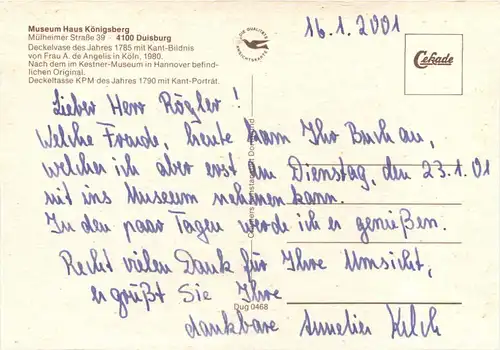 Museum Haus Königsberg
Mülheimer Straße 39 · 4100 Duisburg
Deckelvase des Jahres 1785 mit Kant-Bildnis
von Frau A. de Angelis in Köln, 1980.
Nach dem im Kestner-Museum in Hannover befind-
lichen Original.
Deckeltasse KPM des Jahres 1790 mit Kant-Porträt.
DIE QUALITÄTS
ANSICHTSKARTE
16.1.2001
Cekade
Lieber Herr Rögler!
Welche Freude, heute kam Ihr Buch an,
welcher ich aber erst am Dienstag, den 23.1.01
mit ins Museum nehmen kann.
In den paar Tagen werde ich er genießen.
Recht vielen Dank für Ihre Umsicht,
er grüßt Sie Ihre
dankbare Annelies
Dug 0468